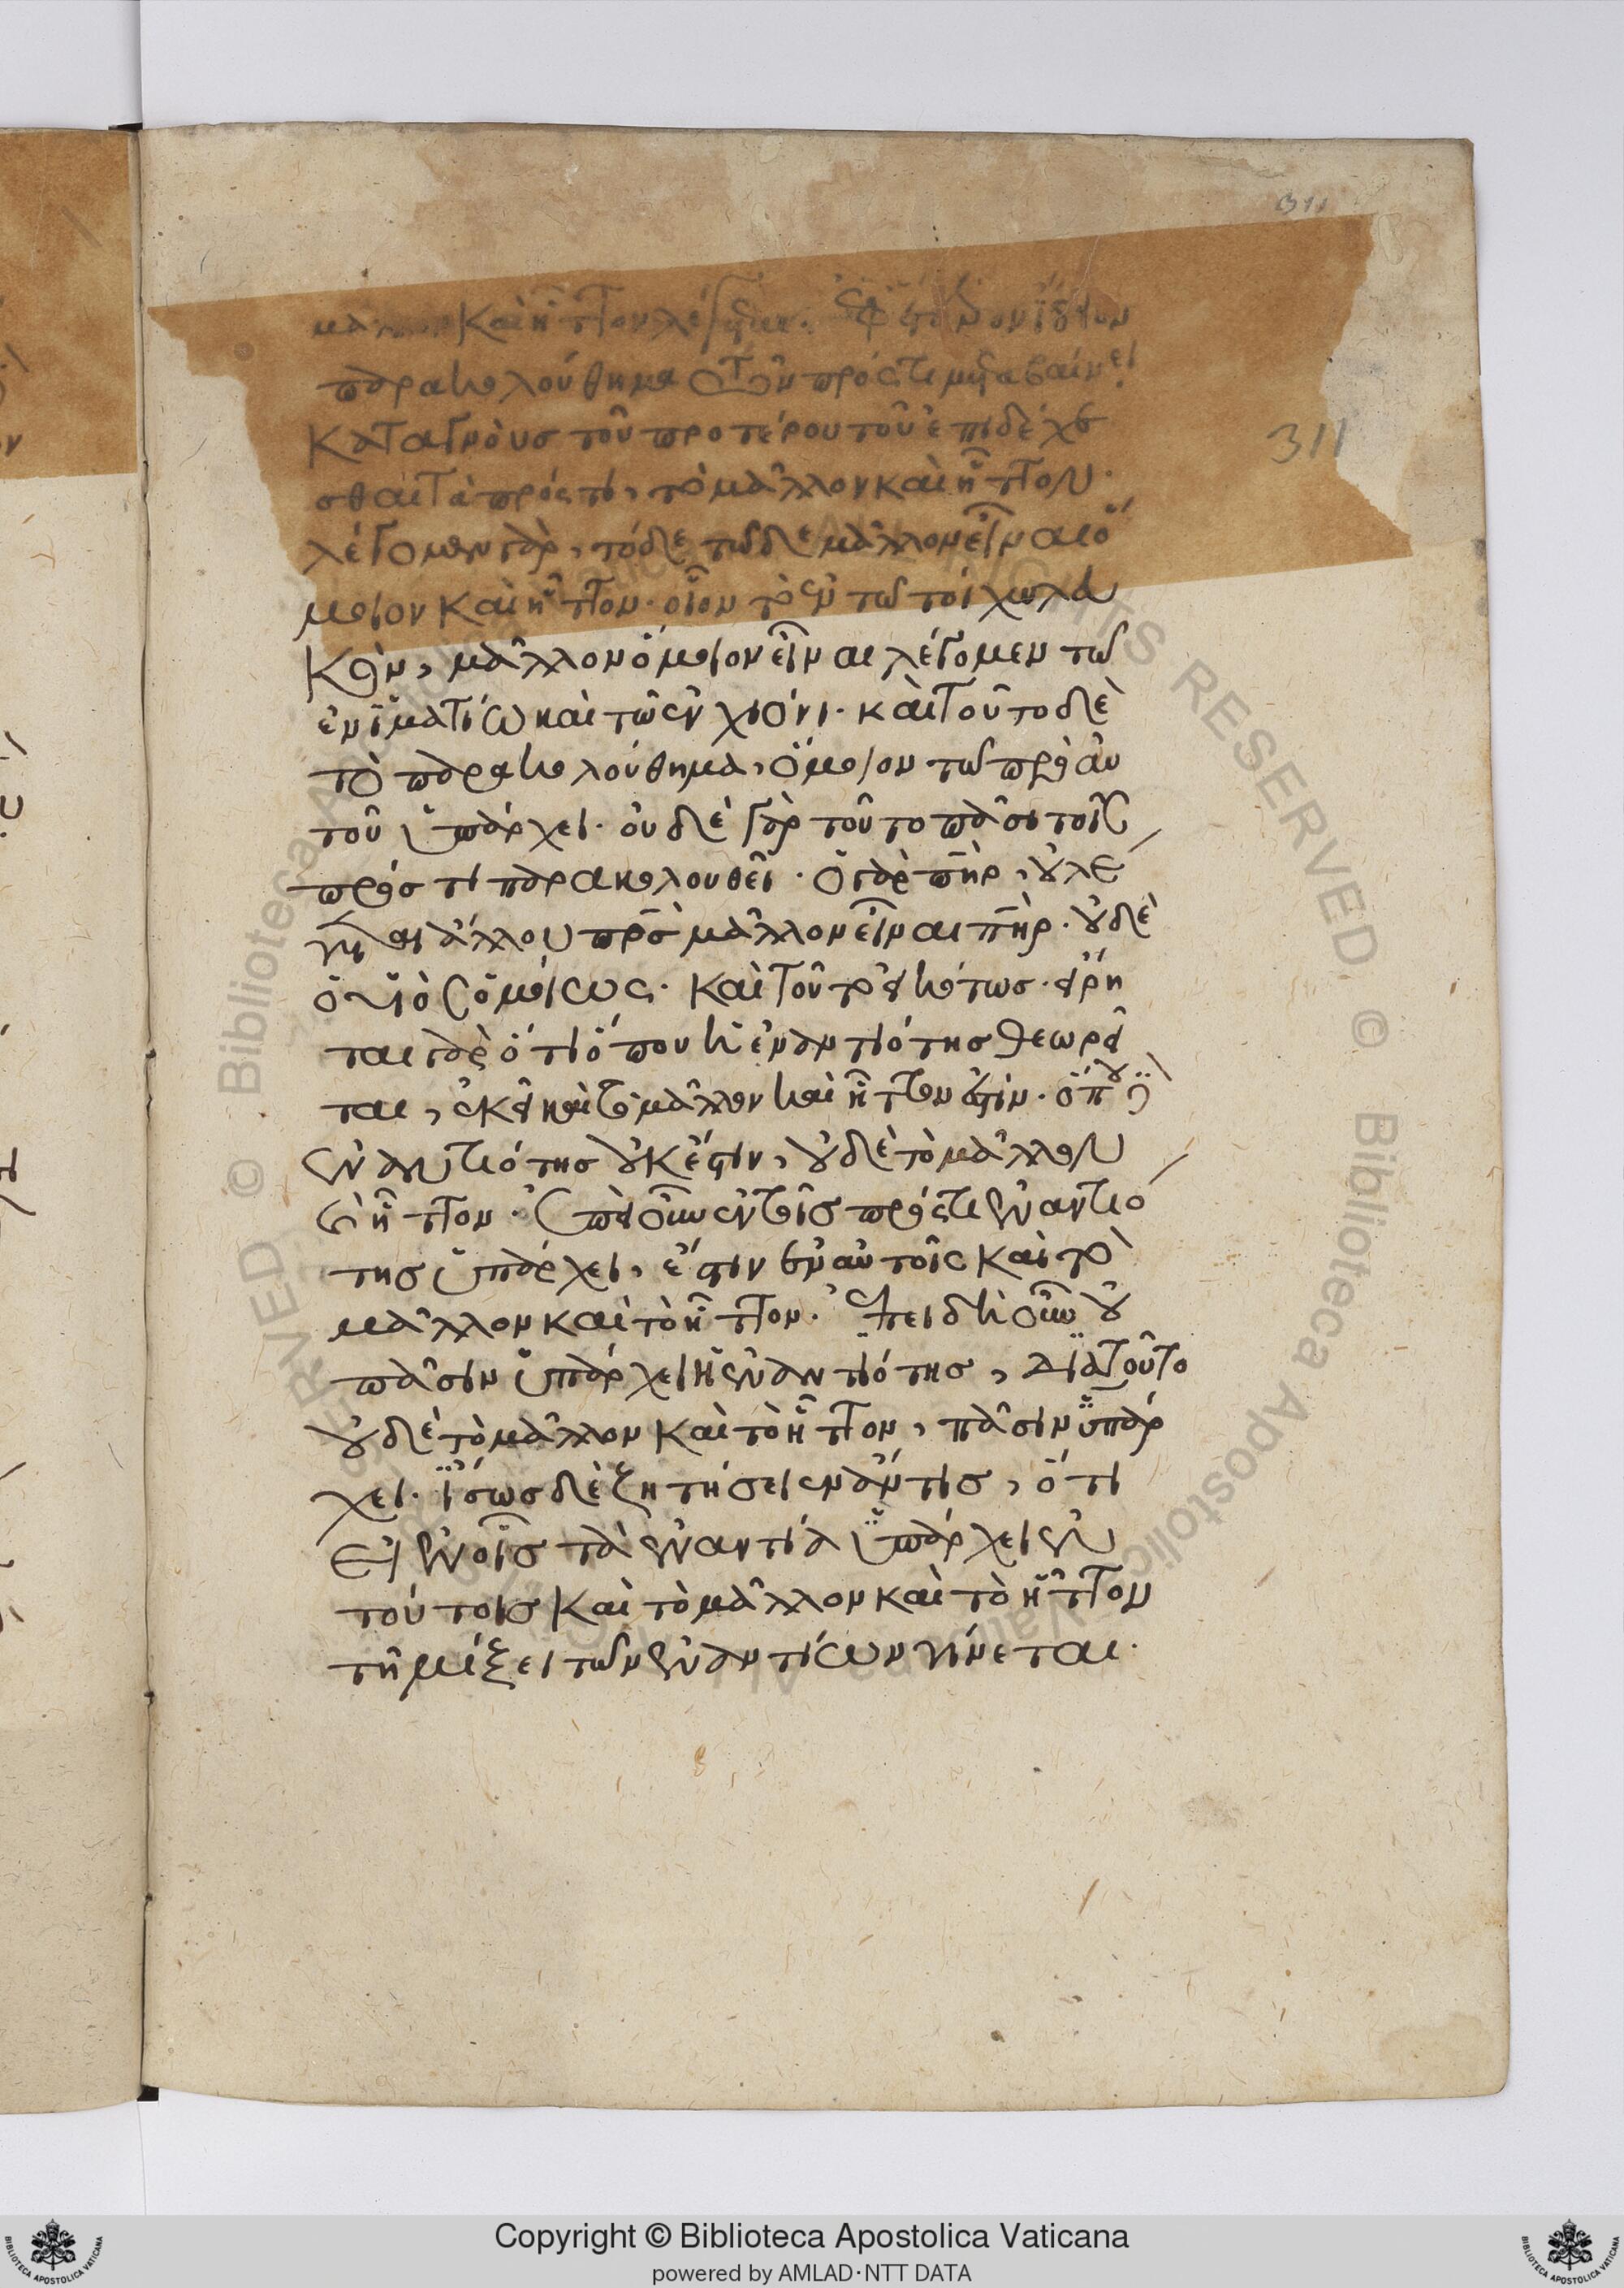 311
μᾶλλον καὶ ἧττον λέγεται. Ἐφ' ἕτερον ἴδιον
παρακολούθημα τῶν πρός τι μεταβαίνει
κατατμους τοῦ προτέρου τοῦ ἐπιδέχε
σθαι τὰ πρός τι, τὸ μᾶλλον καὶ ἧττον·
λέγομεν γὰρ, τόδε τῶδε μᾶλλον εἶναι ὅ
μοιον καὶ ἧττον· οἷον τὸ ἐν τῶ τοίχω λευ
κὸν, μᾶλλον ὅμοιον εἶναι λέγομεν τῶ
ἐν ἱματίω καὶ τῶ ἐν χιόνι· καὶ τοῦτο δὲ
τὸ παρακολούθημα, ὅμοιον τῶ πρὸ αὐ
τοῦ ὑπάρχει· οὐδὲ γὰρ τοῦτο πᾶσι τοῖς
πρός τι παρακολουθεῖ· ὁ γὰρ πηρ, οὐ λέ
γεται ἄλλου προς μᾶλλον εἶναι πηρ· οὐδὲ
ὁ υἱὸς ὁμοίως· καὶ τοῦτο εἰκότως· εἴρη
ται γὰρ ὅτι ὅπου ἡ ἐναντιότης θεωρεῖ
ται, ἐκεῖ καὶ τὸ μᾶλλον καὶ ἧττον ἐστίν· ὅπου
ἐναντιότης οὐκ ἔστιν, οὐδὲ τὸ μᾶλλον
καὶ ἧττον· Ἐπεὶ οὖν ἐν τοῖς πρός τι ἐναντιό
της ὑπάρχει, ἔστιν ἐν αὐτοῖς καὶ τὸ
μᾶλλον καὶ τὸ ἧττον· Ἐπειδὴ οὖν οὐ
πᾶσιν ὑπάρχει ἡ ἐναντιότης, διὰ τοῦτο
οὐδὲ τὸ μᾶλλον καὶ τὸ ἧττον, πᾶσιν ὑπάρ
χει· ἴσως δὲ ζητήσειεν ἄν τις, ὅτι
εἰ ἐν οἷς τὰ ἐναντία ὑπάρχει ἐν
τούτοις καὶ τὸ μᾶλλον καὶ τὸ ἧττον
τῆ μίξει τῶν ἐναντίων γίνεται·
311
© Biblioteca Apostolica Vaticana
ALL RIGHTS RESERVED
Copyright © Biblioteca Apostolica Vaticana
powered by AMLAD·NTT DATA